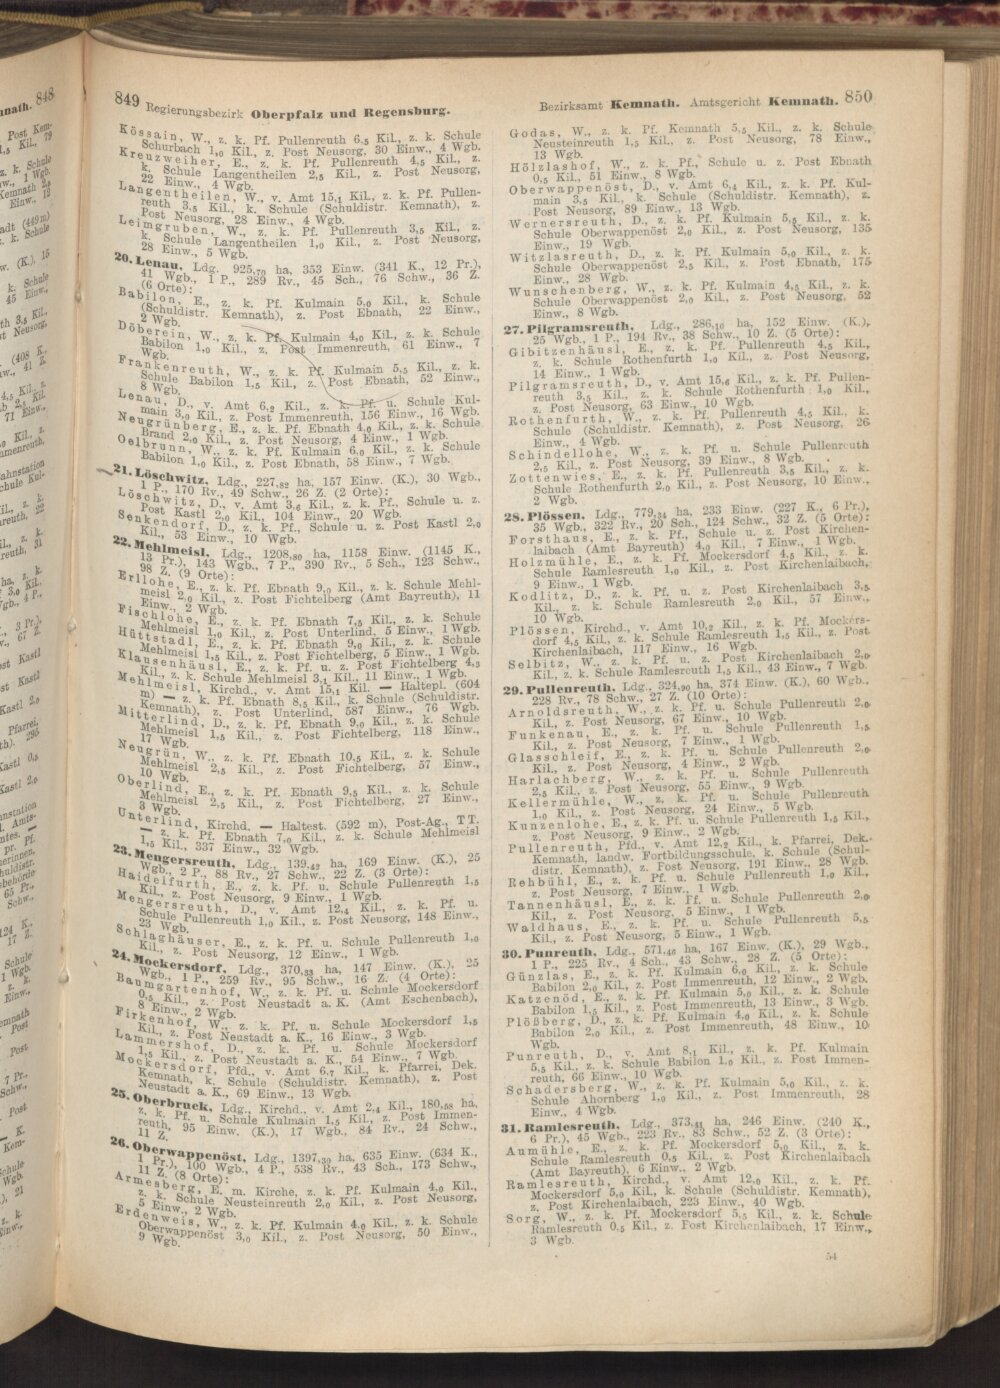 849 Regierungsbezirk Oberpfalz und Regensburg.
Kössain, W., z. k. Pf. Pullenreuth 6,5 Kil., z. k. Schule
Schurbach 1,0 Kil., z. Post Neusorg, 30 Einw., 4 Wgb.
Kreuzweiher, E., z. k. Pf. Pullenreuth 4,5 Kil., z.
k. Schule Langentheilen 2,5 Kil., z. Post Neusorg,
22 Einw., 4 Wgb.
Langentheilen, W., v. Amt 15,1 Kil., z. k. Pf. Pullen-
reuth 3,5 Kil., k. Schule (Schuldistr. Kemnath), z.
Post Neusorg, 28 Einw., 4 Wgb.
Leimgruben, W., z. k. Pf. Pullenreuth 3,5 Kil., z.
k. Schule Langentheilen 1,0 Kil., z. Post Neusorg,
28 Einw., 5 Wgb.
20. Lenau, Ldg. 925,70 ha, 353 Einw. (341 K., 12 Pr.),
41 Wgb., 1 P., 289 Rv., 45 Sch., 76 Schw., 36 Z.
(6 Orte):
Babilon, E., z. k. Pf. Kulmain 5,0 Kil., k. Schule
(Schuldistr. Kemnath), z. Post Ebnath, 22 Einw.,
2 Wgb.
Döberein, W., z. k. Pf. Kulmain 4,0 Kil., z. k. Schule
Babilon 1,0 Kil., z. Post Immenreuth, 61 Einw., 7
Wgb.
Frankenreuth, W., z. k. Pf. Kulmain 5,5 Kil., z. k.
Schule Babilon 1,5 Kil., z. Post Ebnath, 52 Einw.,
8 Wgb.
Lenau, D., v. Amt 6,2 Kil., z. k. Pf. u. Schule Kul-
main 3,0 Kil., z. Post Immenreuth, 156 Einw., 16 Wgb.
Neugrünberg, E., z. k. Pf. Ebnath 4,0 Kil., z. k. Schule
Brand 2,0 Kil., z. Post Neusorg, 4 Einw., 1 Wgb.
Oelbrunn, W., z. k. Pf. Kulmain 6,0 Kil., z. k. Schule
Babilon 1,0 Kil., z. Post Ebnath, 58 Einw., 7 Wgb.
21. Löschwitz, Ldg. 227,82 ha, 157 Einw. (K.), 30 Wgb.,
1 P., 170 Rv., 49 Schw., 26 Z. (2 Orte):
Löschwitz, D., v. Amt 3,6 Kil., z. k. Pf., Schule u. z.
Post Kastl 2,0 Kil., 104 Einw., 20 Wgb.
Senkendorf, D., z. k. Pf., Schule u. z. Post Kastl 2,0
Kil., 53 Einw., 10 Wgb.
22. Mehlmeisl, Ldg. 1208,80 ha, 1158 Einw. (1145 K.,
13 Pr.), 143 Wgb., 7 P., 390 Rv., 5 Sch., 123 Schw.,
98 Z. (9 Orte):
Erllohe, E., z. k. Pf. Ebnath 9,0 Kil., z. k. Schule Mehl-
meisl 2,0 Kil., z. Post Fichtelberg (Amt Bayreuth), 11
Einw., 2 Wgb.
Fischlohe, E., z. k. Pf. Ebnath 7,5 Kil., z. k. Schule
Mehlmeisl 1,0 Kil., z. Post Unterlind, 5 Einw., 1 Wgb.
Hüttstadl, E., z. k. Pf. Ebnath 9,0 Kil., z. k. Schule
Mehlmeisl 1,5 Kil., z. Post Fichtelberg, 5 Einw., 1 Wgb.
Klausenhäusl, E., z. k. Pf. u. z. Post Fichtelberg 4,3
Kil., z. k. Schule Mehlmeisl 3,1 Kil., 11 Einw., 1 Wgb.
Mehlmeisl, Kirchd., v. Amt 15,1 Kil. — Haltepl. (604
m) — z. k. Pf. Ebnath 8,5 Kil., k. Schule (Schuldistr.
Kemnath), z. Post Unterlind, 587 Einw., 76 Wgb.
Mitterlind, D., z. k. Pf. Ebnath 9,0 Kil., z. k. Schule
Mehlmeisl 1,5 Kil., z. Post Fichtelberg, 118 Einw.,
17 Wgb.
Neugrün, W., z. k. Pf. Ebnath 10,5 Kil., z. k. Schule
Mehlmeisl 2,5 Kil., z. Post Fichtelberg, 57 Einw.,
10 Wgb.
Oberlind, E., z. k. Pf. Ebnath 9,5 Kil., z. k. Schule
Mehlmeisl 2,5 Kil., z. Post Fichtelberg, 27 Einw.,
3 Wgb.
Unterlind, Kirchd. — Haltest. (592 m), Post-Ag., TT.
— z. k. Pf. Ebnath 7,0 Kil., z. k. Schule Mehlmeisl
1,5 Kil., 337 Einw., 32 Wgb.
23. Mengersreuth, Ldg. 139,42 ha, 169 Einw. (K.), 25
Wgb., 2 P., 88 Rv., 27 Schw., 22 Z. (3 Orte):
Haidelfurth, E., z. k. Pf. u. Schule Pullenreuth 1,5
Kil., z. Post Neusorg, 9 Einw., 1 Wgb.
Mengersreuth, D., v. Amt 12,4 Kil., z. k. Pf. u.
Schule Pullenreuth 1,0 Kil., z. Post Neusorg, 148 Einw.,
23 Wgb.
Schlaghäuser, E., z. k. Pf. u. Schule Pullenreuth 1,0
Kil., z. Post Neusorg, 12 Einw., 1 Wgb.
24. Mockersdorf, Ldg., 370,33 ha, 147 Einw. (K.), 25
Wgb., 1 P., 259 Rv., 95 Schw., 16 Z. (4 Orte):
Baumgartenhof, W., z. k. Pf. u. Schule Mockersdorf
0,5 Kil., z. Post Neustadt a. K. (Amt Eschenbach),
8 Einw., 2 Wgb.
Firkenhof, W., z. k. Pf. u. Schule Mockersdorf 1,5
Kil., z. Post Neustadt a. K., 16 Einw., 3 Wgb.
Lammershof, D., z. k. Pf. u. Schule Mockersdorf
1,5 Kil., z. Post Neustadt a. K., 54 Einw., 7 Wgb.
Mockersdorf, Pfd., v. Amt 6,7 Kil., k. Pfarrei, Dek.
Kemnath, k. Schule (Schuldistr. Kemnath), z. Post
Neustadt a. K., 69 Einw., 13 Wgb.
25. Oberbruck, Ldg., Kirchd., v. Amt 2,4 Kil., 180,58 ha,
z. k. Pf. u. Schule Kulmain 1,5 Kil., z. Post Immen-
reuth, 95 Einw. (K.), 17 Wgb., 84 Rv., 24 Schw.,
11 Z.
26. Oberwappenöst, Ldg., 1397,30 ha, 635 Einw. (634 K.,
1 Pr.), 100 Wgb., 4 P., 538 Rv., 43 Sch., 173 Schw.,
11 Z. (8 Orte):
Armesberg, E. m. Kirche, z. k. Pf. Kulmain 4,0 Kil.,
z. k. Schule Neusteinreuth 2,0 Kil., z. Post Neusorg,
5 Einw., 2 Wgb.
Erdenweis, W., z. k. Pf. Kulmain 4,0 Kil., z. k. Schule
Oberwappenöst 3,0 Kil., z. Post Neusorg, 50 Einw.,
9 Wgb.
Bezirksamt Kemnath. Amtsgericht Kemnath. 850
Godas, W., z. k. Pf. Kemnath 5,5 Kil., z. k. Schule
Neusteinreuth 1,5 Kil., z. Post Neusorg, 78 Einw.,
13 Wgb.
Hölzlashof, W., z. k. Pf., Schule u. z. Post Ebnath
0,5 Kil., 51 Einw., 8 Wgb.
Oberwappenöst, D., v. Amt 6,4 Kil., z. k. Pf. Kul-
main 3,5 Kil., k. Schule (Schuldistr. Kemnath), z.
Post Neusorg, 89 Einw., 13 Wgb.
Wernersreuth, D., z. k. Pf. Kulmain 5,5 Kil., z. k.
Schule Oberwappenöst 2,0 Kil., z. Post Neusorg, 135
Einw., 19 Wgb.
Witzlasreuth, D., z. k. Pf. Kulmain 5,0 Kil., z. k.
Schule Oberwappenöst 2,5 Kil., z. Post Ebnath, 175
Einw., 28 Wgb.
Wunschenberg, W., z. k. Pf. Kulmain 4,5 Kil., z. k.
Schule Oberwappenöst 2,0 Kil., z. Post Neusorg, 52
Einw., 8 Wgb.
27. Pilgramsreuth, Ldg., 286,10 ha, 152 Einw. (K.),
25 Wgb., 1 P., 194 Rv., 38 Schw., 10 Z. (5 Orte):
Gibitzenhäusl, E., z. k. Pf. Pullenreuth 4,5 Kil.,
z. k. Schule Rothenfurth 1,0 Kil., z. Post Neusorg,
14 Einw., 1 Wgb.
Pilgramsreuth, D., v. Amt 15,6 Kil., z. k. Pf. Pullen-
reuth 3,5 Kil., z. k. Schule Rothenfurth 1,0 Kil.,
z. Post Neusorg, 63 Einw., 10 Wgb.
Rothenfurth, W., z. k. Pf. Pullenreuth 4,5 Kil., k.
Schule (Schuldistr. Kemnath), z. Post Neusorg, 26
Einw., 4 Wgb.
Schindellohe, W., z. k. Pf. u. Schule Pullenreuth
2,5 Kil., z. Post Neusorg, 39 Einw., 8 Wgb.
Zottenwies, E., z. k. Pf. Pullenreuth 3,5 Kil., z. k.
Schule Rothenfurth 2,0 Kil., z. Post Neusorg, 10 Einw.,
2 Wgb.
28. Plössen, Ldg., 779,34 ha, 233 Einw. (227 K., 6 Pr.),
35 Wgb., 322 Rv., 20 Sch., 124 Schw., 32 Z. (5 Orte):
Forsthaus, E., z. k. Pf., Schule u. z. Post Kirchen-
laibach (Amt Bayreuth) 4,0 Kil., 7 Einw., 1 Wgb.
Holzmühle, E., z. k. Pf. Mockersdorf 4,5 Kil., z. k.
Schule Ramlesreuth 1,0 Kil., z. Post Kirchenlaibach,
9 Einw., 1 Wgb.
Kodlitz, D., z. k. Pf. u. z. Post Kirchenlaibach 3,5
Kil., z. k. Schule Ramlesreuth 2,0 Kil., 57 Einw.,
10 Wgb.
Plössen, Kirchd., v. Amt 10,2 Kil., z. k. Pf. Mockers-
dorf 4,5 Kil., z. k. Schule Ramlesreuth 1,5 Kil., z. Post
Kirchenlaibach, 117 Einw., 16 Wgb.
Selbitz, W., z. k. Pf. u. z. Post Kirchenlaibach 2,0
Kil., z. k. Schule Ramlesreuth 1,5 Kil., 43 Einw., 7 Wgb.
29. Pullenreuth, Ldg., 324,90 ha, 374 Einw. (K.), 60 Wgb.,
228 Rv., 78 Schw., 27 Z. (10 Orte):
Arnoldsreuth, W., z. k. Pf. u. Schule Pullenreuth 2,0
Kil., z. Post Neusorg, 67 Einw., 10 Wgb.
Funkenau, E., z. k. Pf. u. Schule Pullenreuth 1,5
Kil., z. Post Neusorg, 7 Einw., 1 Wgb.
Glasschleif, E., z. k. Pf. u. Schule Pullenreuth 2,0
Kil., z. Post Neusorg, 4 Einw., 2 Wgb.
Harlachberg, W., z. k. Pf. u. Schule Pullenreuth
2,5 Kil., z. Post Neusorg, 55 Einw., 9 Wgb.
Kellermühle, W., z. k. Pf. u. Schule Pullenreuth
1,0 Kil., z. Post Neusorg, 24 Einw., 5 Wgb.
Kunzenlohe, E., z. k. Pf. u. Schule Pullenreuth 1,5 Kil.,
z. Post Neusorg, 9 Einw., 2 Wgb.
Pullenreuth, Pfd., v. Amt 12,2 Kil., k. Pfarrei, Dek.
Kemnath, landw. Fortbildungsschule, k. Schule (Schul-
distr. Kemnath), z. Post Neusorg, 191 Einw., 28 Wgb.
Rehbühl, E., z. k. Pf. u. Schule Pullenreuth 1,0 Kil.,
z. Post Neusorg, 7 Einw., 1 Wgb.
Tannenhäusl, E., z. k. Pf. u. Schule Pullenreuth 2,0
Kil., z. Post Neusorg, 5 Einw., 1 Wgb.
Waldhaus, E., z. k. Pf. u. Schule Pullenreuth 5,5
Kil., z. Post Neusorg, 5 Einw., 1 Wgb.
30. Punreuth, Ldg., 571,48 ha, 167 Einw. (K.), 29 Wgb.,
1 P., 225 Rv., 4 Sch., 43 Schw., 28 Z. (5 Orte):
Günzlas, E., z. k. Pf. Kulmain 6,0 Kil., z. k. Schule
Babilon 2,0 Kil., z. Post Immenreuth, 12 Einw., 2 Wgb.
Katzenöd, E., z. k. Pf. Kulmain 5,0 Kil., z. k. Schule
Babilon 1,5 Kil., z. Post Immenreuth, 13 Einw., 3 Wgb.
Plößberg, D., z. k. Pf. Kulmain 4,0 Kil., z. k. Schule
Babilon 2,0 Kil., z. Post Immenreuth, 48 Einw., 10
Wgb.
Punreuth, D., v. Amt 8,1 Kil., z. k. Pf. Kulmain
5,5 Kil., z. k. Schule Babilon 1,0 Kil., z. Post Immen-
reuth, 66 Einw., 10 Wgb.
Schadersberg, W., z. k. Pf. Kulmain 5,0 Kil., z. k.
Schule Ahornberg 1,0 Kil., z. Post Immenreuth, 28
Einw., 4 Wgb.
31. Ramlesreuth, Ldg., 373,41 ha, 246 Einw. (240 K.,
6 Pr.), 45 Wgb., 223 Rv., 83 Schw., 52 Z. (3 Orte):
Aumühle, E., z. k. Pf. Mockersdorf 5,0 Kil., z. k.
Schule Ramlesreuth 0,5 Kil., z. Post Kirchenlaibach
(Amt Bayreuth), 6 Einw., 2 Wgb.
Ramlesreuth, Kirchd., v. Amt 12,0 Kil., z. k. Pf.
Mockersdorf 5,0 Kil., k. Schule (Schuldistr. Kemnath),
z. Post Kirchenlaibach, 223 Einw., 40 Wgb.
Sorg, W., z. k. Pf. Mockersdorf 5,5 Kil., z. k. Schule
Ramlesreuth 0,5 Kil., z. Post Kirchenlaibach, 17 Einw.,
3 Wgb.
54